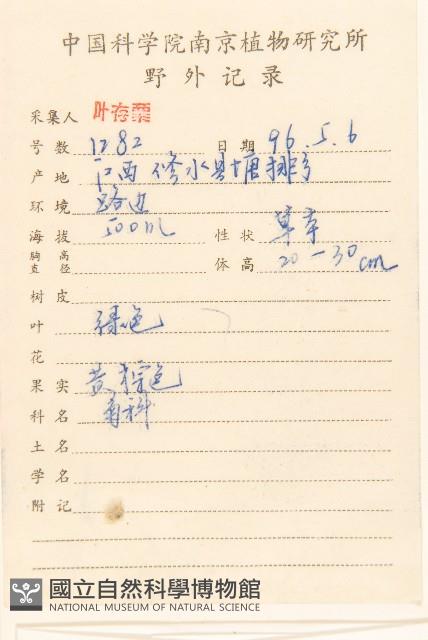 中国科学院南京植物研究所
野外记录
采集人 叶存粟
号数 1282 日期 96.5.6
产地 江西修水县塘排乡
环境 路边
海拔 500m 性状 草本
胸高直径 体高 20-30cm
树皮
叶 绿色
花
果实 黄棕色
科名
土名
学名
附记
國立自然科學博物館
NATIONAL MUSEUM OF NATURAL SCIENCE